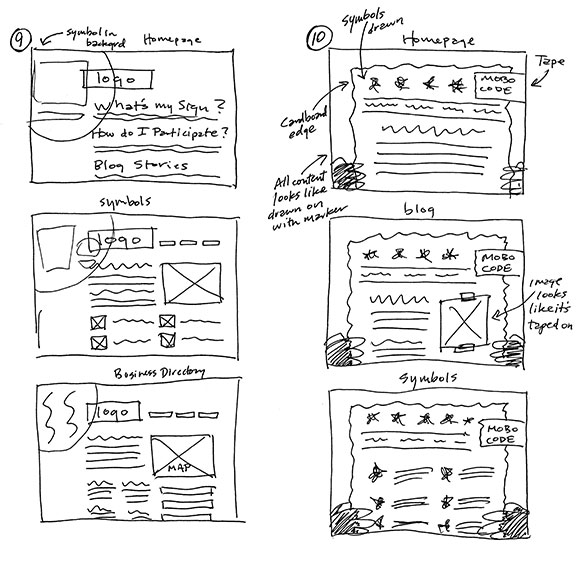 9
symbol in
backgrd
Homepage
logo
What's my Sign?
How do I Participate?
Blog Stories
symbols
logo
Business Directory
logo
MAP
10
symbols
drawn
Homepage
Tape
MOBO
CODE
Cardboard
edge
All content
looks like
drawn on
with marker
blog
MOBO
CODE
image
looks
like it's
taped on
Symbols
MOBO
CODE